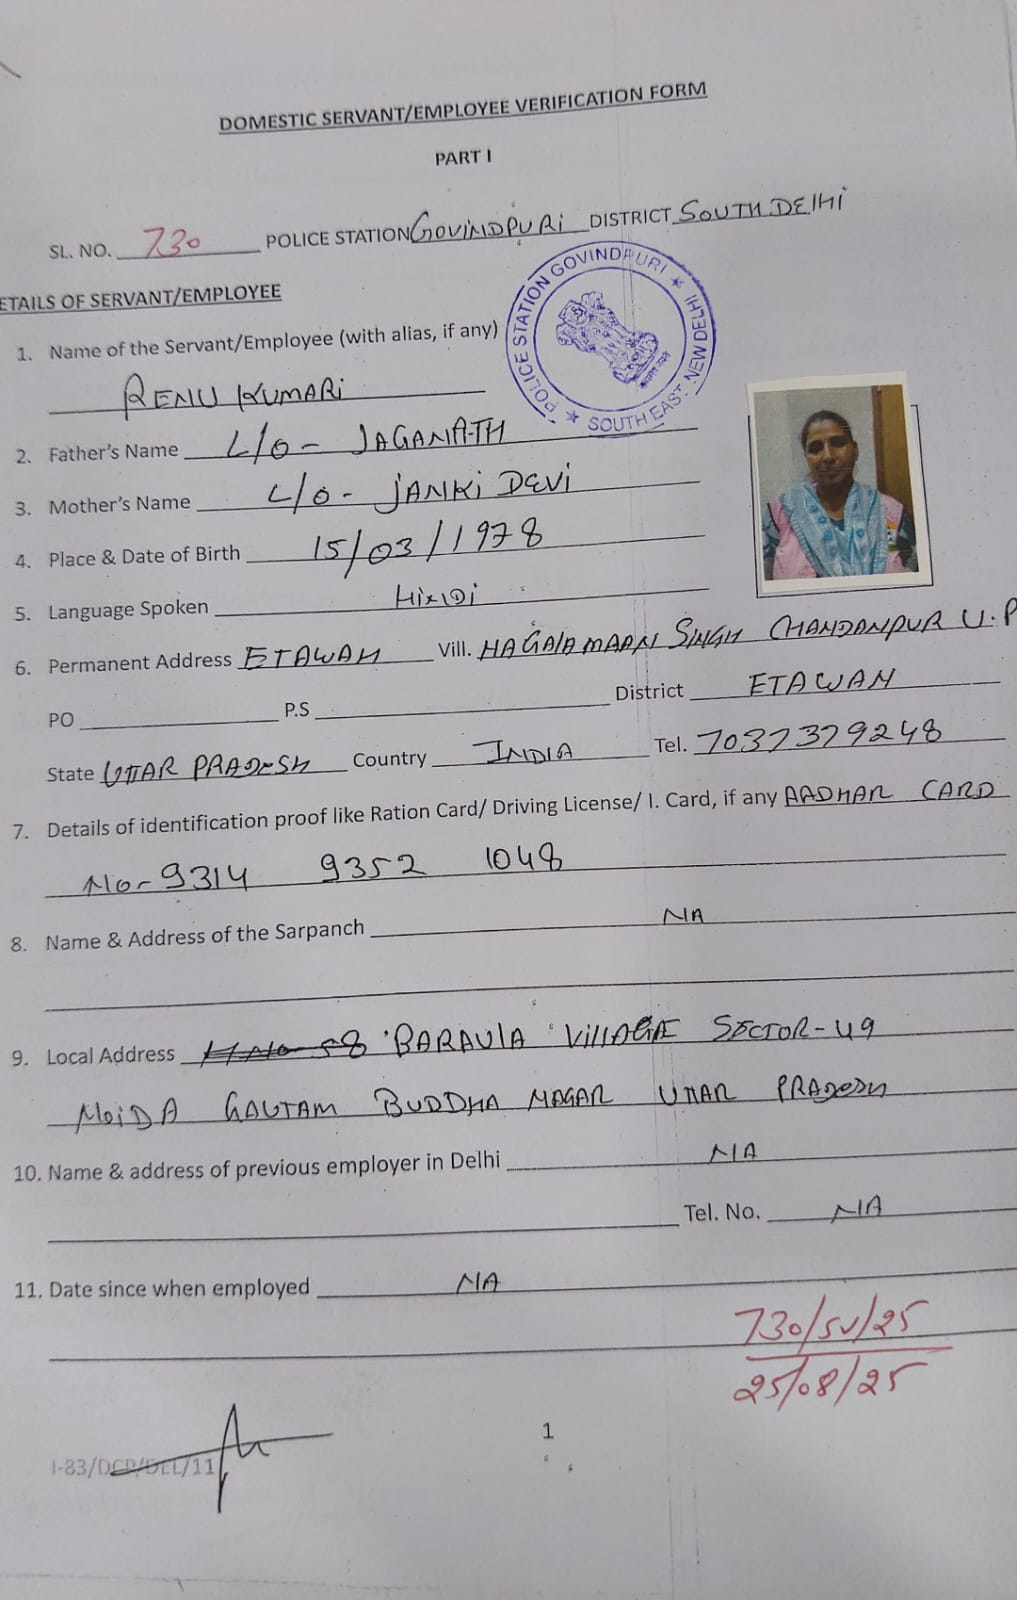 DOMESTIC SERVANT/EMPLOYEE VERIFICATION FORM
PART I
SL. NO. 730 POLICE STATION GOVINDPURI DISTRICT SOUTH DElHi
POLICE STATION GOVINDPURI ★ SOUTH EAST: NEW DELHI ★
ETAILS OF SERVANT/EMPLOYEE
1. Name of the Servant/Employee (with alias, if any)
RENU KUMARi
2. Father's Name L/O - JAGANATH
3. Mother's Name L/O - JANKi DEVi
4. Place & Date of Birth 15/03/1978
5. Language Spoken HiNDi
6. Permanent Address ETAWAH Vill. SINGH CHANDANPUR U.P
PO P.S District ETAWAH
State UTTAR PRADESH Country INDIA Tel. 7037379248
7. Details of identification proof like Ration Card/ Driving License/ I. Card, if any AADHAR CARD
No- 9314 9352 1048
8. Name & Address of the Sarpanch NA
9. Local Address H.No 58 BARAULA VillAGE SECTOR-49
NOiDA GAUTAM BUDDHA NAGAR UTTAR PRADESH
10. Name & address of previous employer in Delhi NIA
Tel. No. NIA
11. Date since when employed NA
730/SV/25
25/08/25
1
I-83/DCP/DEL/11